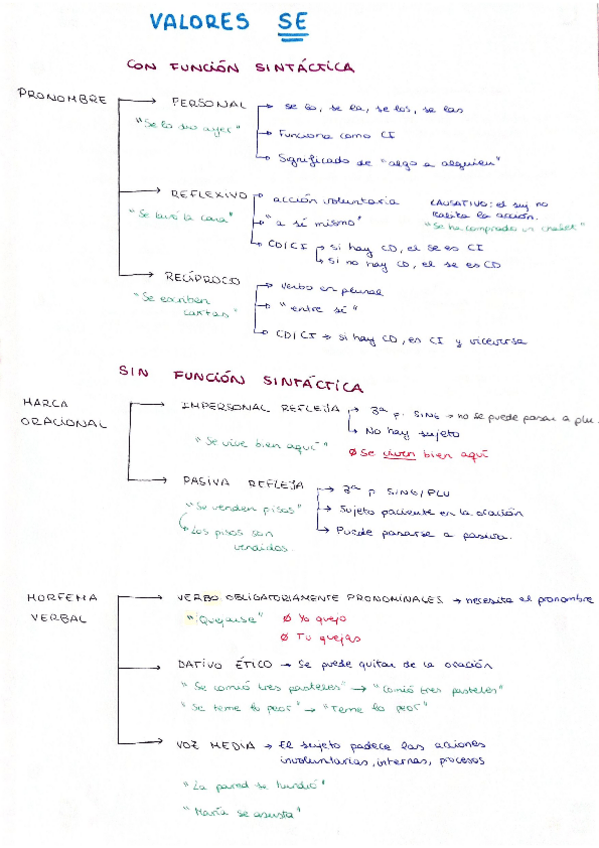 VALORES SE
CON FUNCIÓN SINTÁCTICA
PRONOMBRE
PERSONAL
"Se lo dio ayer"
se lo, se la, se los, se las
Funciona como CI
Significado de "algo a alguien"
REFLEXIVO
"Se lavó la cara"
acción voluntaria
"a sí mismo"
CD/CI
si hay CD, el se es CI
si no hay CD, el se es CD
CAUSATIVO: el suj no
realiza la acción.
"Se ha comprado un chalet"
RECÍPROCO
"Se escriben
cartas"
verbo en plural
"entre sí"
CD/CI → si hay CD, es CI y viceversa
SIN FUNCIÓN SINTÁCTICA
MARCA
ORACIONAL
IMPERSONAL REFLEJA
"Se vive bien aquí"
3ª p. SING → no se puede pasar a plu.
No hay sujeto
Ø Se viven bien aquí
PASIVA REFLEJA
"Se venden pisos"
Los pisos son
vendidos.
3ª p SING/PLU
Sujeto paciente en la oración
Puede pasarse a pasiva.
MORFEMA
VERBAL
VERBO OBLIGATORIAMENTE PRONOMINALES → necesita el pronombre
"Quejarse"
Ø Yo quejo
Ø Tu quejas
DATIVO ÉTICO → Se puede quitar de la oración
"Se comió tres pasteles" → "Comió tres pasteles"
"Se teme lo peor" → "Teme lo peor"
VOZ MEDIA → El sujeto padece las acciones
involuntarias, internas, procesos
"La pared se hundió"
"María se asusta"